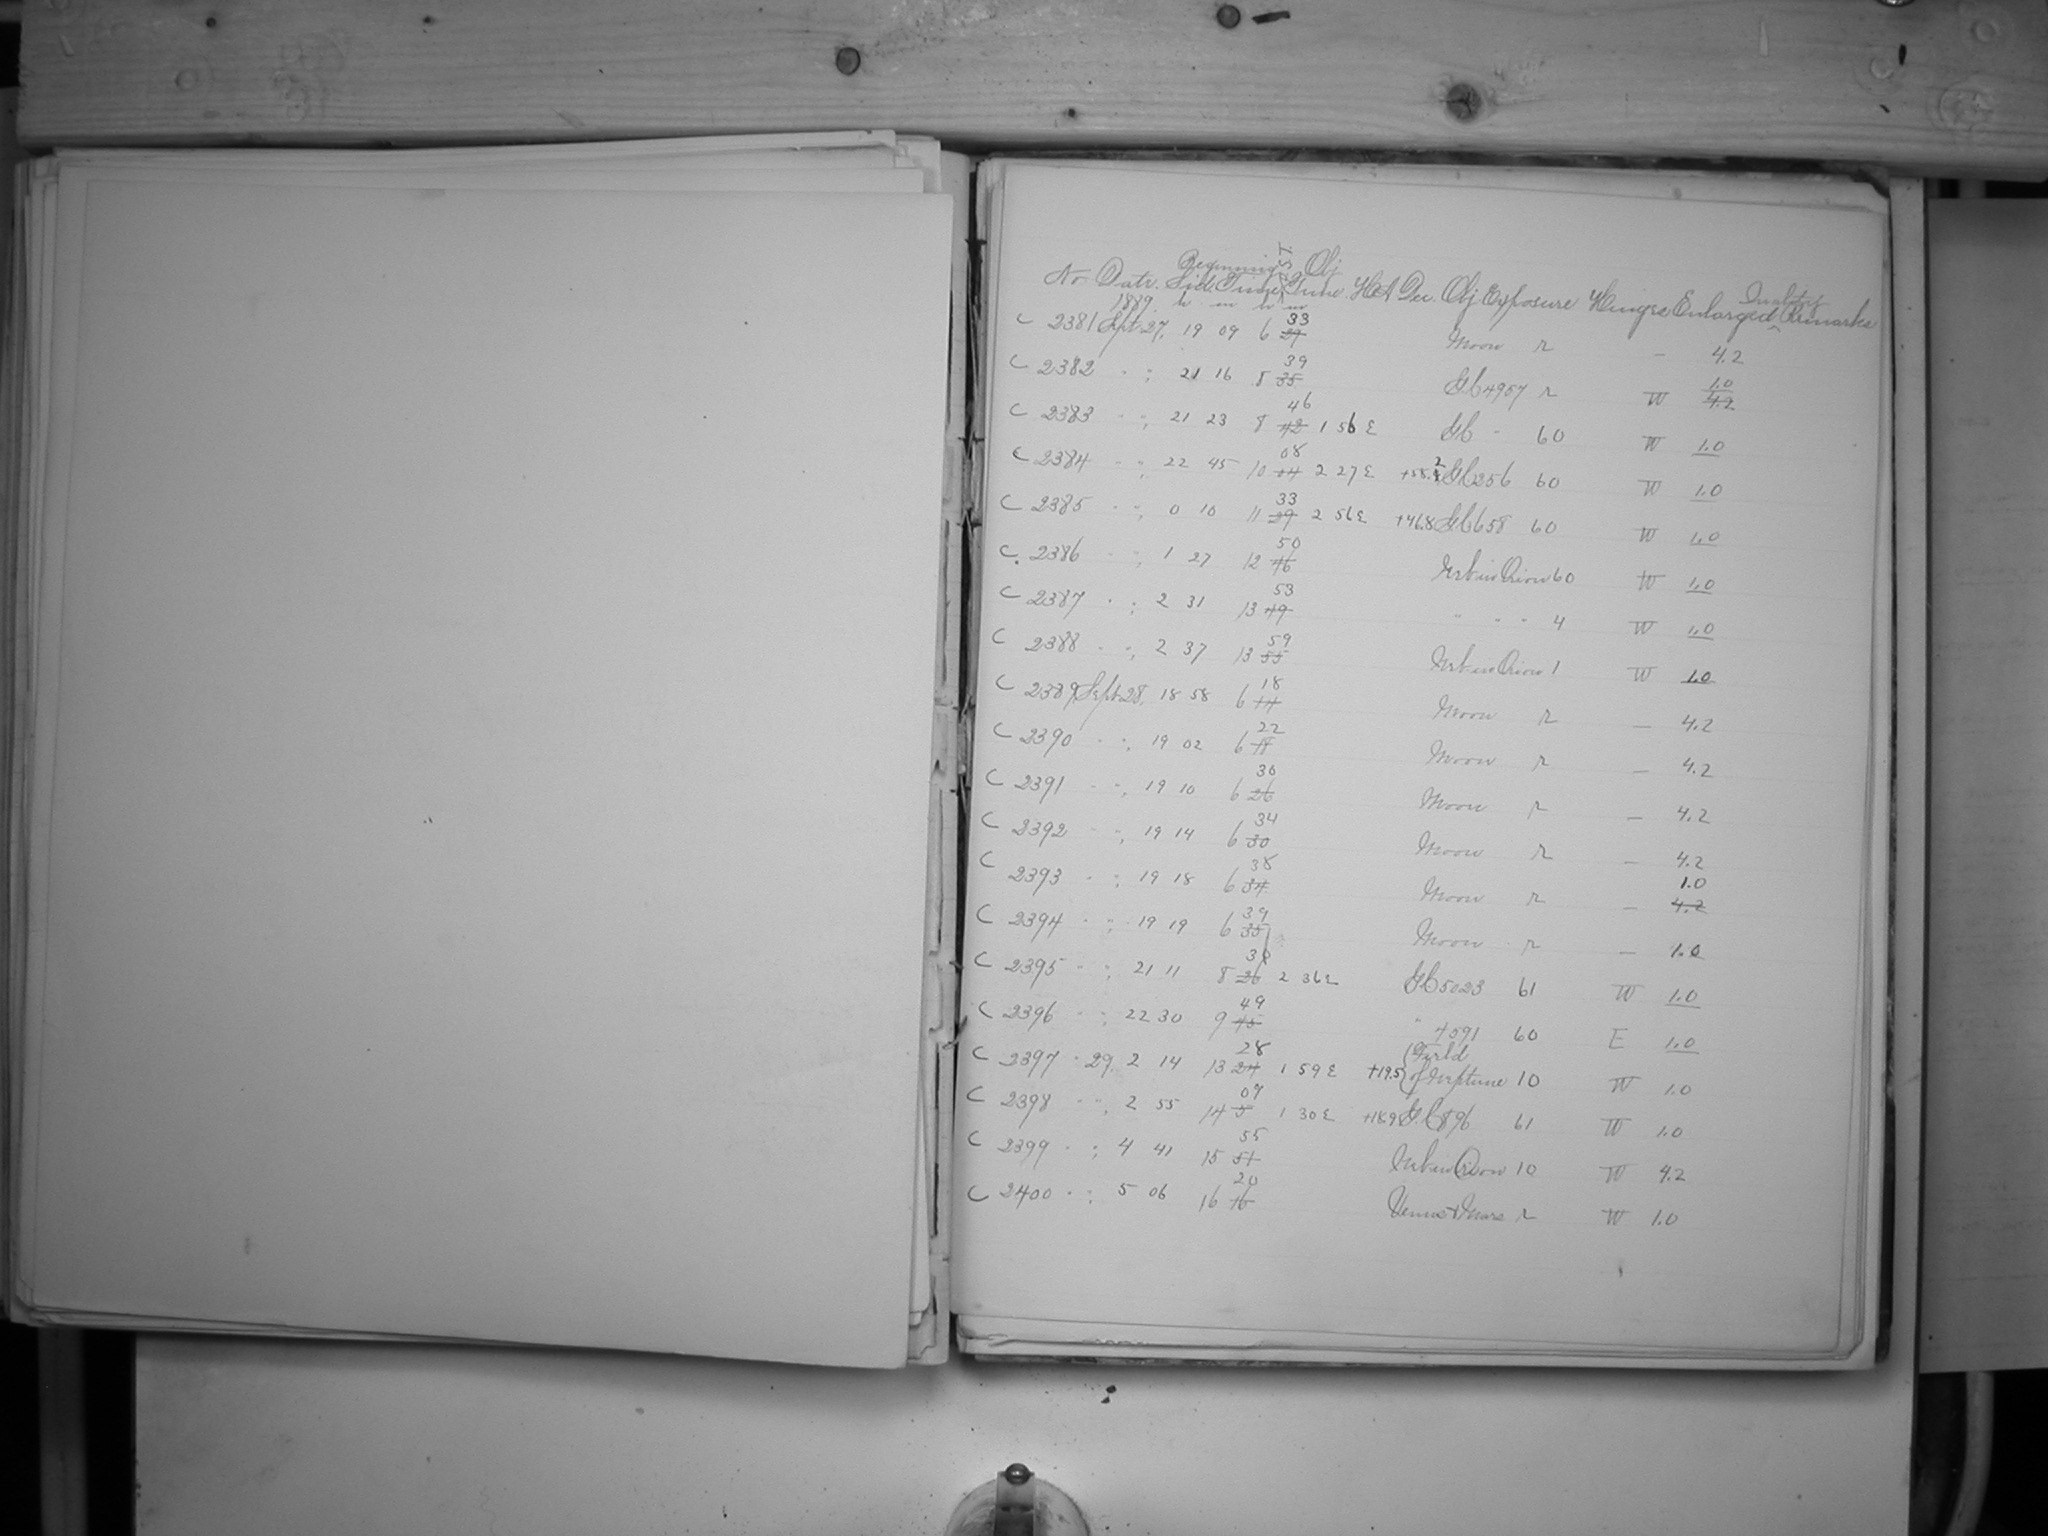 Beginning E.S.T. Obj
No. Date. Sid. Time Time H A Dec. Obj Exposure Hinges Enlarged Quality Remarks
1889. h m h m
C 2381 Sept. 27, 19 09 6 33 29 Moon r – 4.2
C 2382 " ", 21 16 8 39 35 G.C. 4957 r W 1.0 4.2
C 2383 " ", 21 23 8 46 42 1 56 E G.C. " 60 W 1.0
C 2384 " ", 22 45 10 08 04 2 27 E +58.2 G.C. 256 60 W 1.0
C 2385 " ", 0 10 11 33 29 2 56 E +46.8 G.C. 658 60 W 1.0
C 2386 " ", 1 27 12 50 46 Neb in Orion 60 W 1.0
C 2387 " ", 2 31 13 53 49 " " " 4 W 1.0
C 2388 " ", 2 37 13 59 55 Neb in Orion 1 W 1.0
C 2389 Sept. 28, 18 58 6 18 14 Moon r – 4.2
C 2390 " ", 19 02 6 22 18 Moon r – 4.2
C 2391 " ", 19 10 6 30 26 Moon r – 4.2
C 2392 " ", 19 14 6 34 30 Moon r – 4.2
C 2393 " ", 19 18 6 38 34 Moon r – 1.0 4.2
C 2394 " ", 19 19 6 39 35 Moon r – 1.0
C 2395 " ", 21 11 8 30 26 2 36 E G.C. 5023 61 W 1.0
C 2396 " ", 22 30 9 49 45 " 4591 60 E 1.0
C 2397 " 29, 2 14 13 28 24 1 59 E +19.5 (Field of Neptune 10 W 1.0
C 2398 " ", 2 55 14 09 5 1 30 E +18.9 G.C. 896 61 W 1.0
C 2399 " ", 4 41 15 55 51 Neb in Orion 10 W 4.2
C 2400 " ", 5 06 16 20 16 Venus & Mars r W 1.0